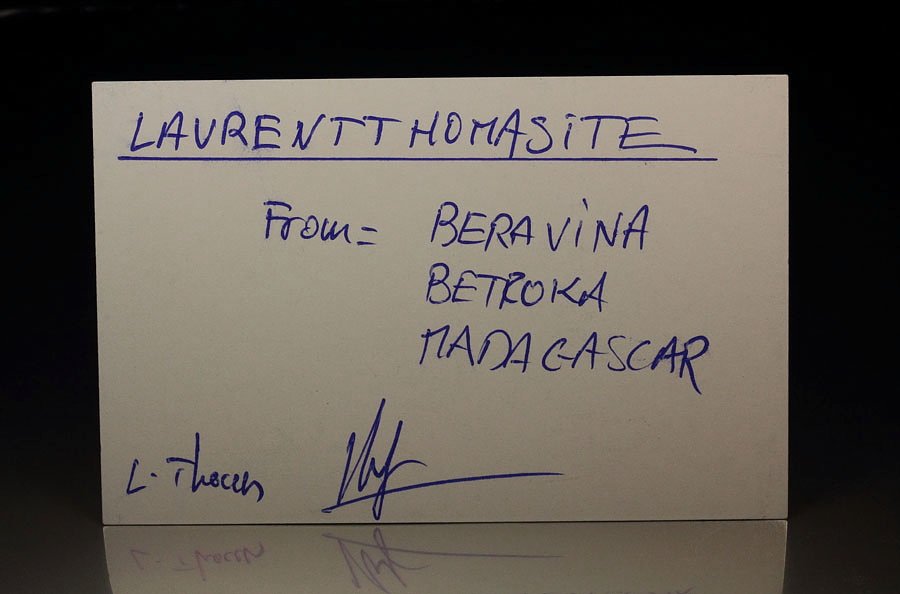 LAURENTTHOMASITE
From= BERAVINA
BETROKA
MADAGASCAR
L. Thomas